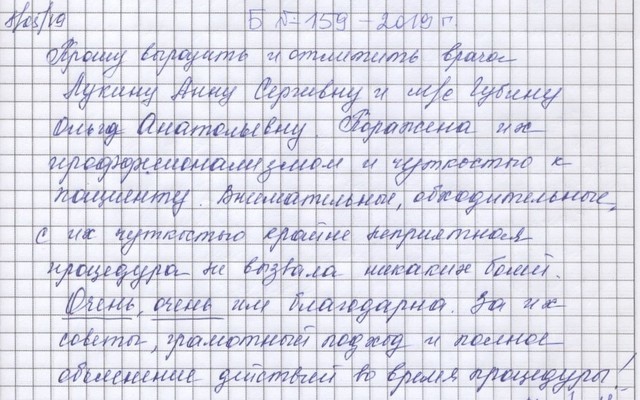 8/05/19 Б № 159 - 2019 г.
Прошу выразить и отметить врача
Лукину Анну Сергивну и м/с Губину
Ольгу Анатольевну. Поражена их
профффионализмом и чуткостью к
пациенту. Внимательные, обходительные,
с их чуткостью крайне неприятная
процедура не вызвала никаких болий.
Очень, очень им благодарна. За их
советы, грамотный подход и полное
обьяснение действий во время процедуры!